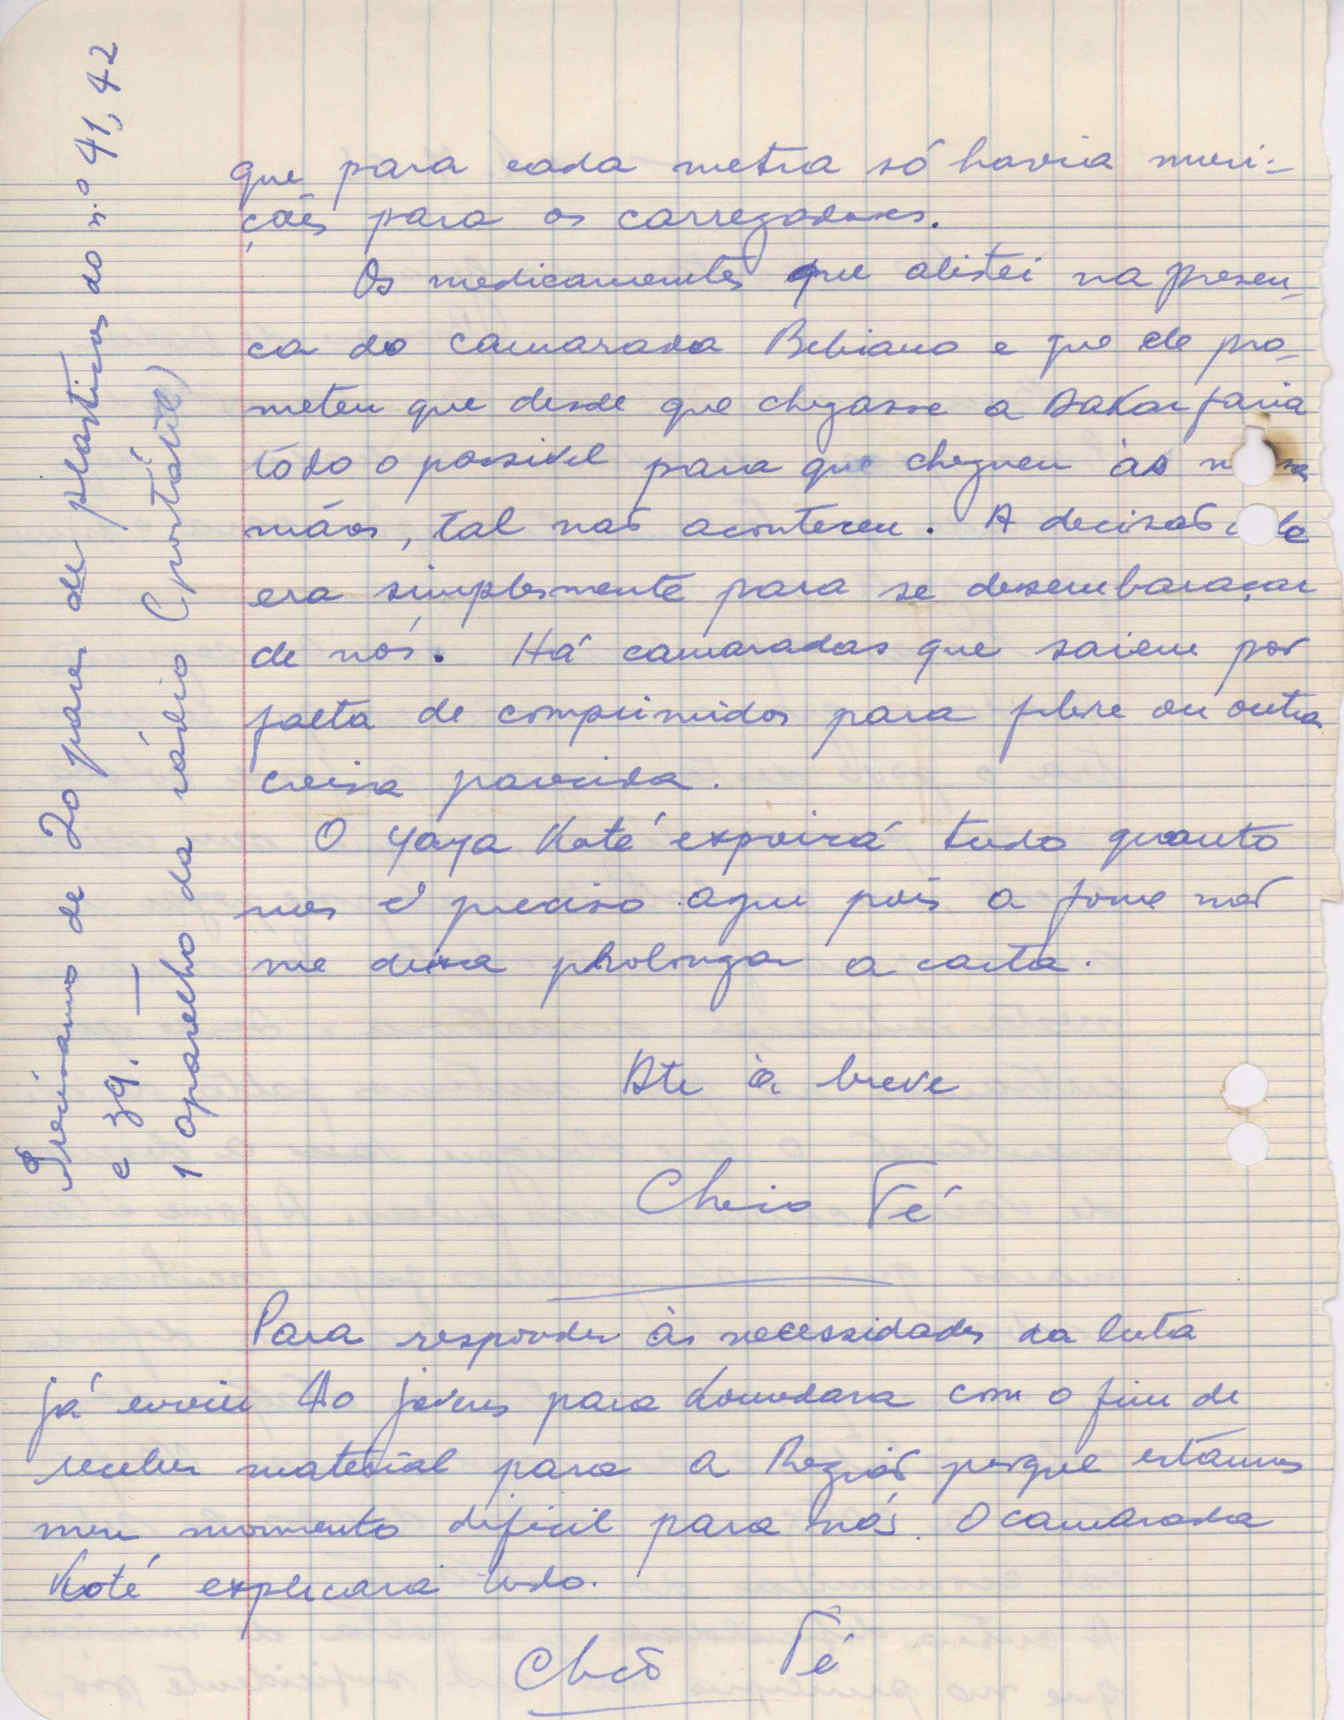 que para cada metra só havia muni-
ções para os carregadores.
Os medicamentos que alistei na presen-
ca do camarada Bebiano e que ele pro-
meteu que desde que chegasse a Dakar faria
todo o possivel para que cheguem às
mãos, tal não aconteceu. A decisão
era simplesmente para se desembaraçar
de nós. Há camaradas que saiem por
falta de comprimidos para febre ou outra
coisa parecida.
O Yaya Koté expoirá tudo quanto
nos é preciso aqui pois a fome não
me deixa prolongar a carta.
Ate à breve
Cheio Fé
Para responder às necessidades da luta
já enviei 40 jovens para Koundara com o fim de
receber material para a Região porque estamos
num momento dificil para nós. O camarada
Koté explicará tudo.
Fé
Precisamos de 20 pares de plasticos do n.º 41, 42
e 39. —
1 aparelho da rádio (portátil)